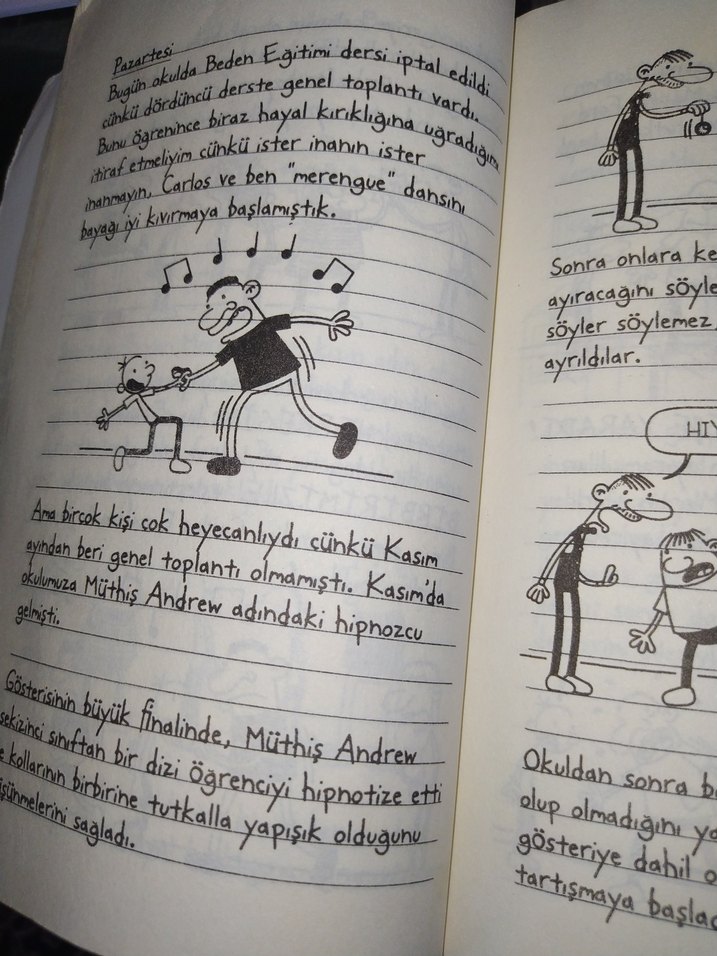 Pazartesi
Bugün okulda Beden Eğitimi dersi iptal edildi
çünkü dördüncü derste genel toplantı vardı.
Bunu öğrenince biraz hayal kırıklığına uğradığım
itiraf etmeliyim çünkü ister inanın ister
inanmayın, Carlos ve ben "merengue" dansını
bayağı iyi kıvırmaya başlamıştık.
Ama birçok kişi çok heyecanlıydı çünkü Kasım
ayından beri genel toplantı olmamıştı. Kasım'da
okulumuza Müthiş Andrew adındaki hipnozcu
gelmişti.
Gösterisinin büyük finalinde, Müthiş Andrew
sekizinci sınıftan bir dizi öğrenciyi hipnotize etti
kollarının birbirine tutkalla yapışık olduğunu
sağladı.
Sonra onlara
ayıracağını
söyler söylemez
ayrıldılar.
Okuldan sonra
olup olmadığını
gösteriye dahil
tartışmaya